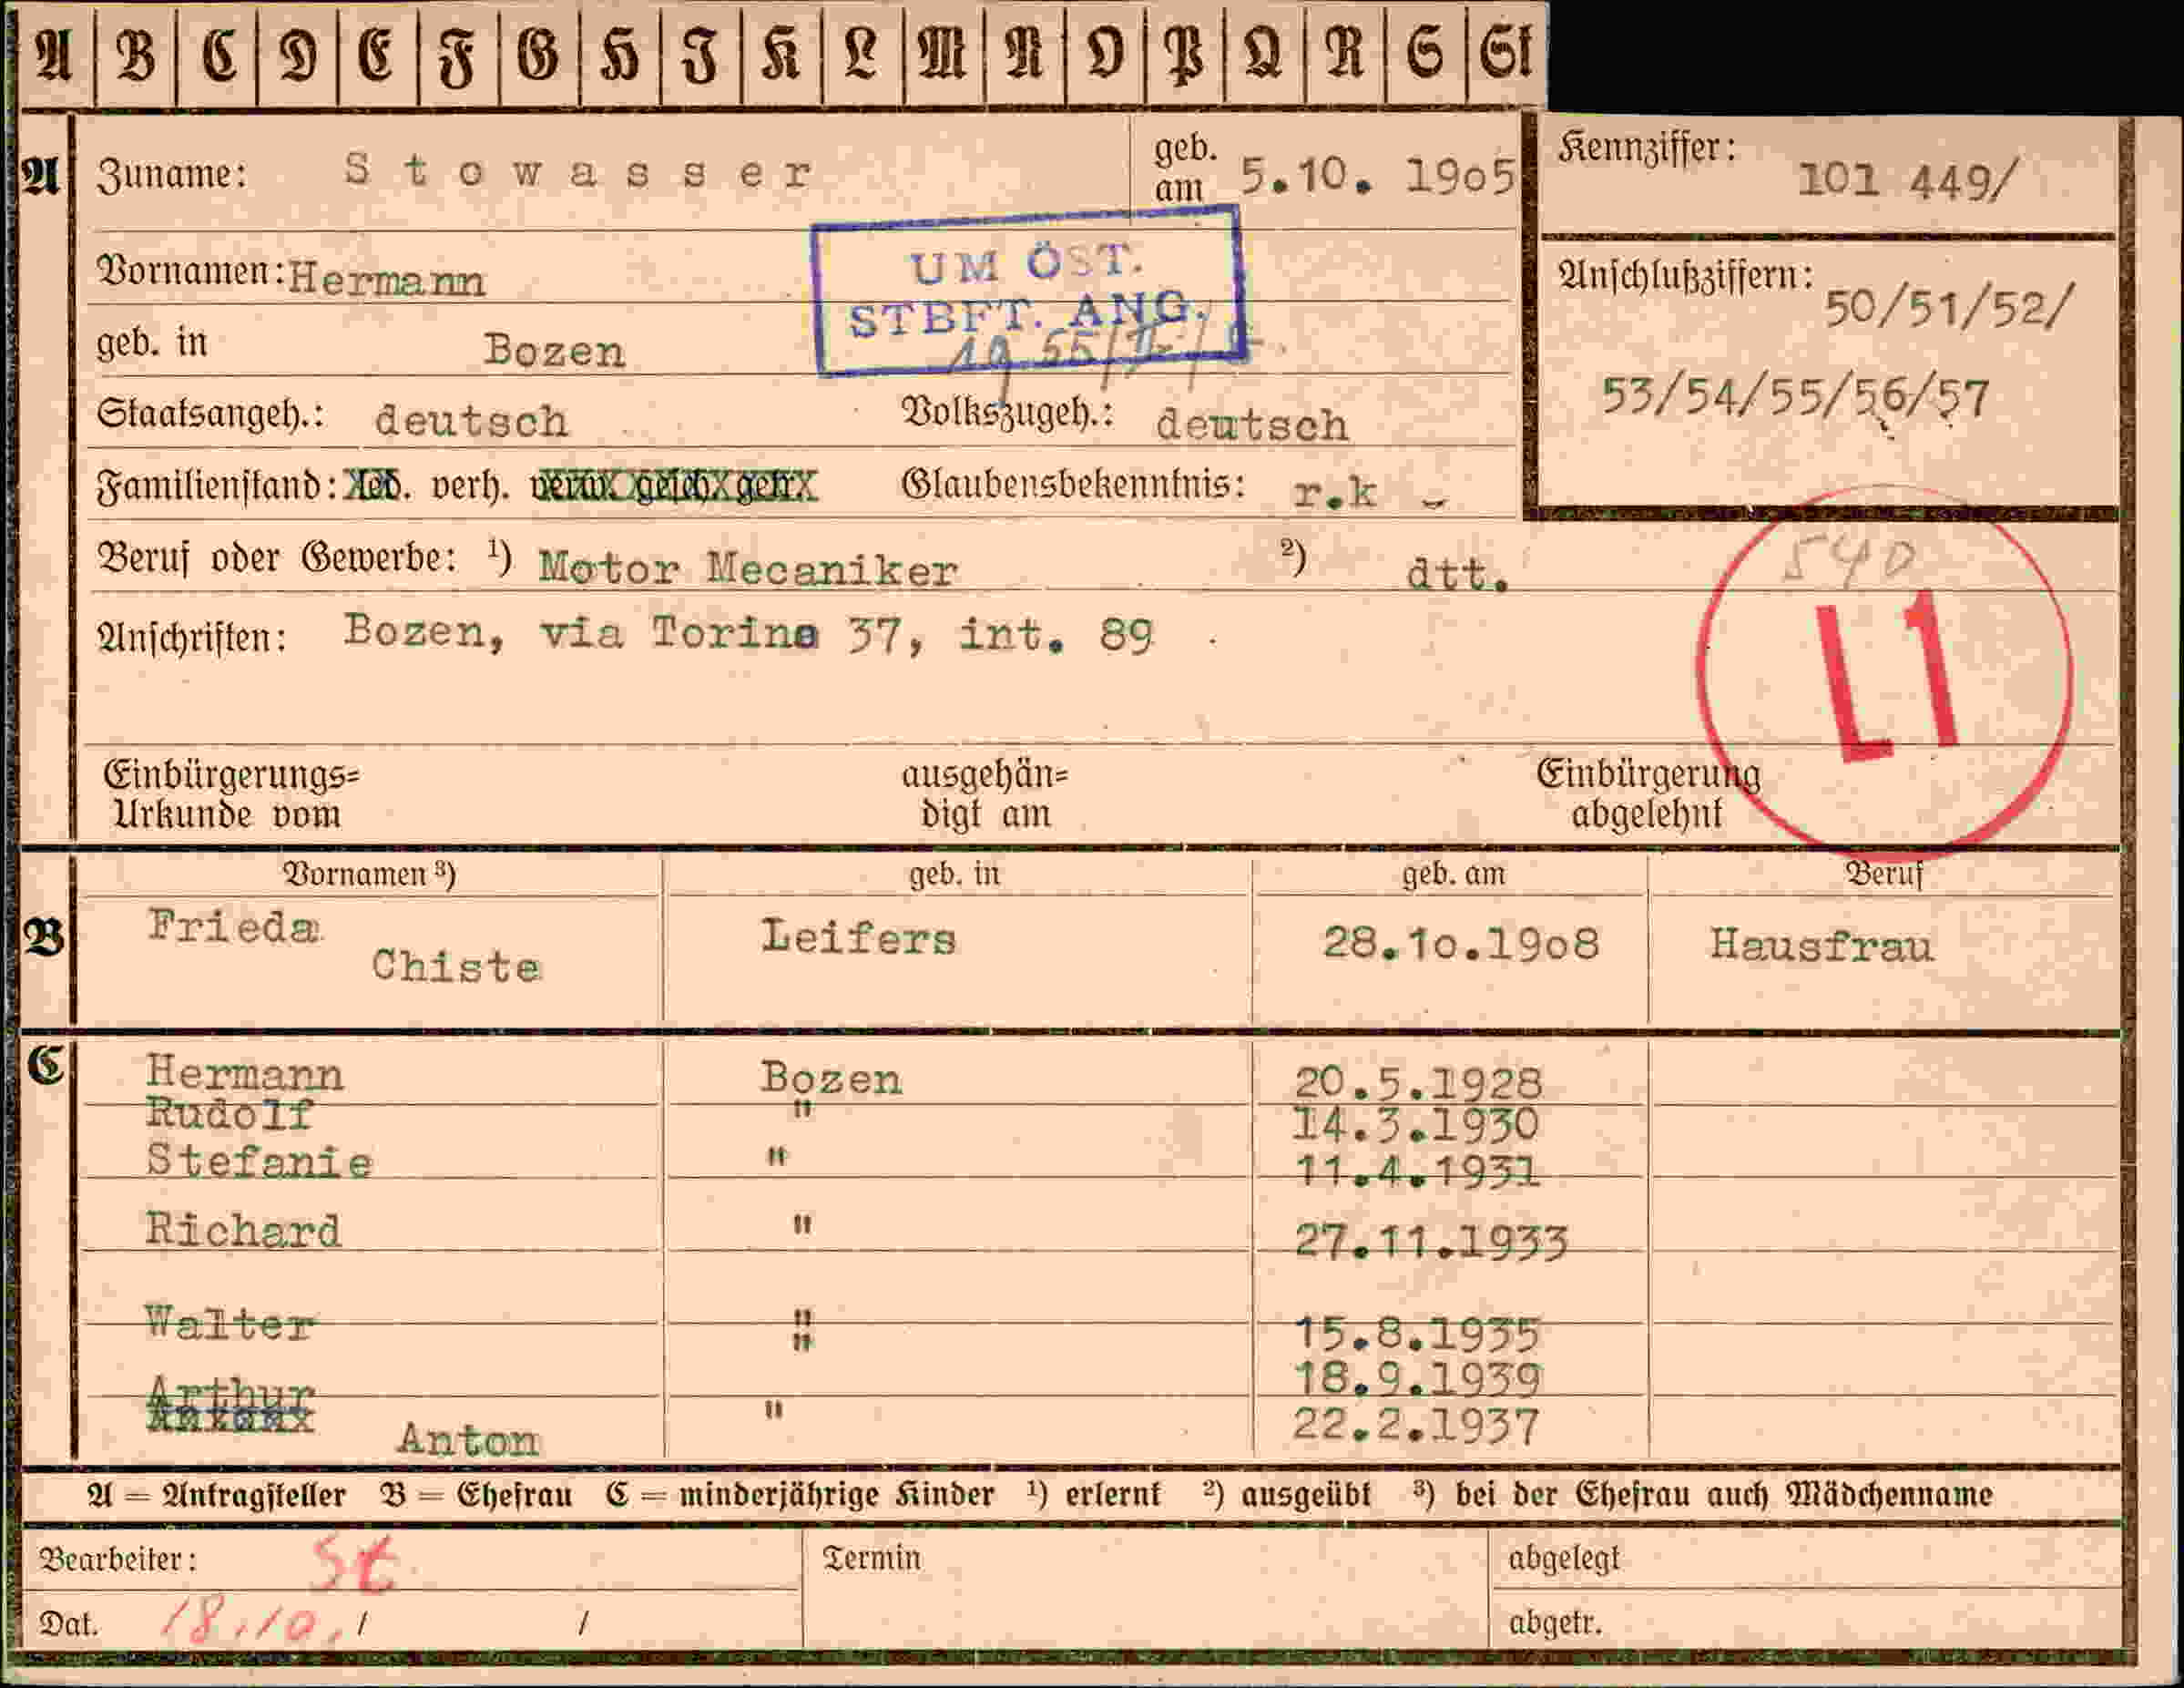 A B C D E F G H I K L M N O P Q R S St
A Zuname: Stowasser geb. am 5.10. 19o5 Kennziffer: 101 449/
Vornamen: Hermann
UM ÖST.
STBFT. ANG.
Anschlußziffern: 50/51/52/
53/54/55/56/57
geb. in Bozen
Staatsangeh.: deutsch Volkszugeh.: deutsch
Familienstand: led. verh. verw. gesch. getr. Glaubensbekenntnis: r.k -
540
Beruf oder Gewerbe: ¹) Motor Mecaniker ²) dtt.
L1
Anschriften: Bozen, via Torino 37, int. 89
Einbürgerungs= ausgehän= Einbürgerung
Urkunde vom digt am abgelehnt
Vornamen ³) geb. in geb. am Beruf
B Frieda Leifers 28.1o.19o8 Hausfrau
Chiste
C Hermann Bozen 20.5.1928
Rudolf " 14.3.1930
Stefanie " 11.4.1931
Richard " 27.11.1933
Walter " 15.8.1935
" 18.9.1939
Arthur
Anton " 22.2.1937
A = Antragsteller B = Ehefrau C = minderjährige Kinder ¹) erlernt ²) ausgeübt ³) bei der Ehefrau auch Mädchenname
Bearbeiter: St Termin abgelegt
Dat. 18.10. / / abgetr.